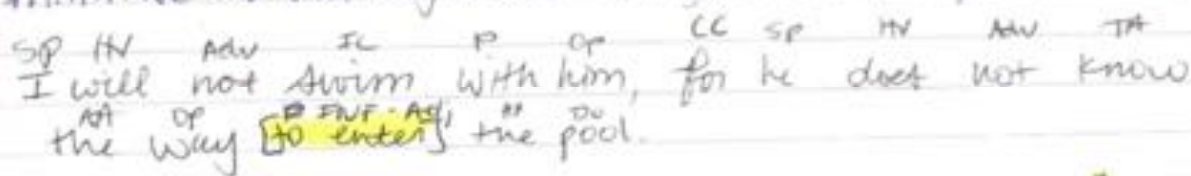 SP HV Adv IC P OP CC SP HV Adv TA
I will not swim with him, for he does not know
AA OP INF-Adj
the way [to enter] the pool.